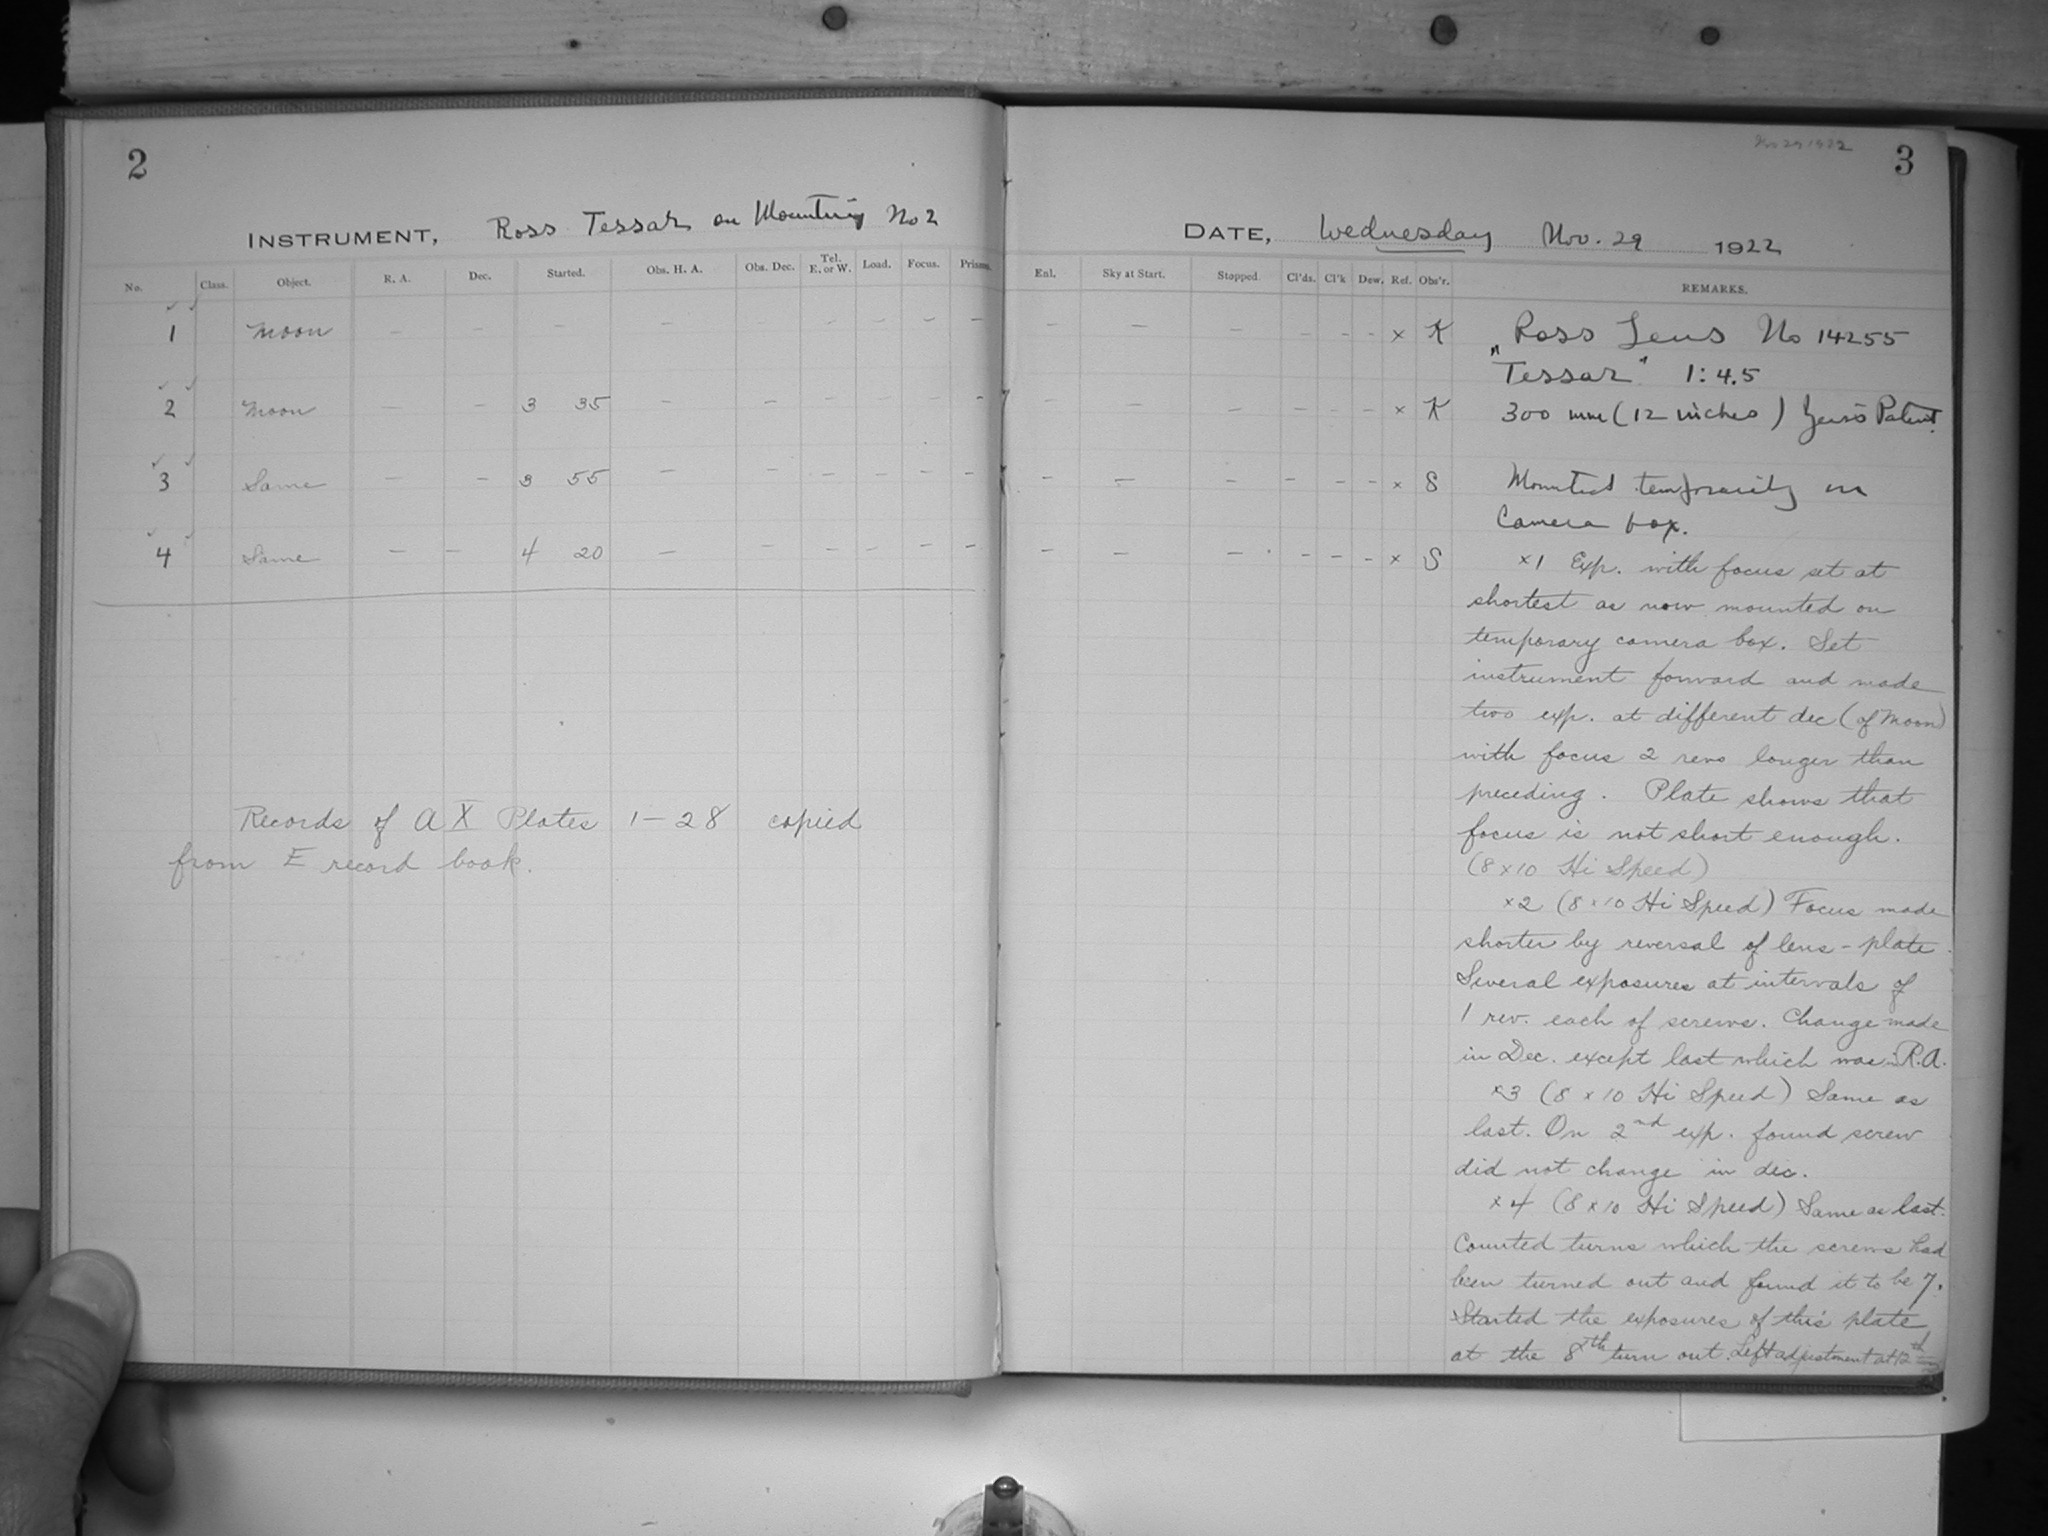 2
INSTRUMENT, Ross Tessar on Mounting No 2
No. Class. Object. R. A. Dec. Started. Obs. H. A. Obs. Dec. Tel. E. or W. Load. Focus. Prisms.
1 Moon — — — — — — — — —
2 Moon — — 3 35 — — — — — —
3 Same — — 3 55 — — — — — —
4 Same — — 4 20 — — — — — —
Records of A X Plates 1—28 copied
from E record book.
Nov 29 1922
3
DATE, Wednesday Nov. 29 1922
Enl. Sky at Start. Stopped. Cl'ds. Cl'k Dew. Ref. Obs'r. REMARKS.
— — — — — — x K Ross Lens No 14255
"Tessar" 1:4.5
— — — — — — x K 300 mm (12 inches) Zeiss Patent.
— — — — — — x S Mounted temporarily in
Camera box.
— — — — — — x S x1 Exp. with focus set at
shortest as now mounted on
temporary camera box. Set
instrument forward and made
two exp. at different dec (of Moon)
with focus 2 revs longer than
preceding. Plate shows that
focus is not short enough.
(8x10 Hi Speed)
x2 (8x10 Hi Speed) Focus made
shorter by reversal of lens-plate.
Several exposures at intervals of
1 rev. each of screws. Change made
in Dec. except last which was in R.A.
x3 (8x10 Hi Speed) Same as
last. On 2nd exp. found screw
did not change in dec.
x4 (8x10 Hi Speed) Same as last.
Counted turns which the screws had
been turned out and found it to be 7.
Started the exposures of this plate
at the 8th turn out. Left adjustment at 12